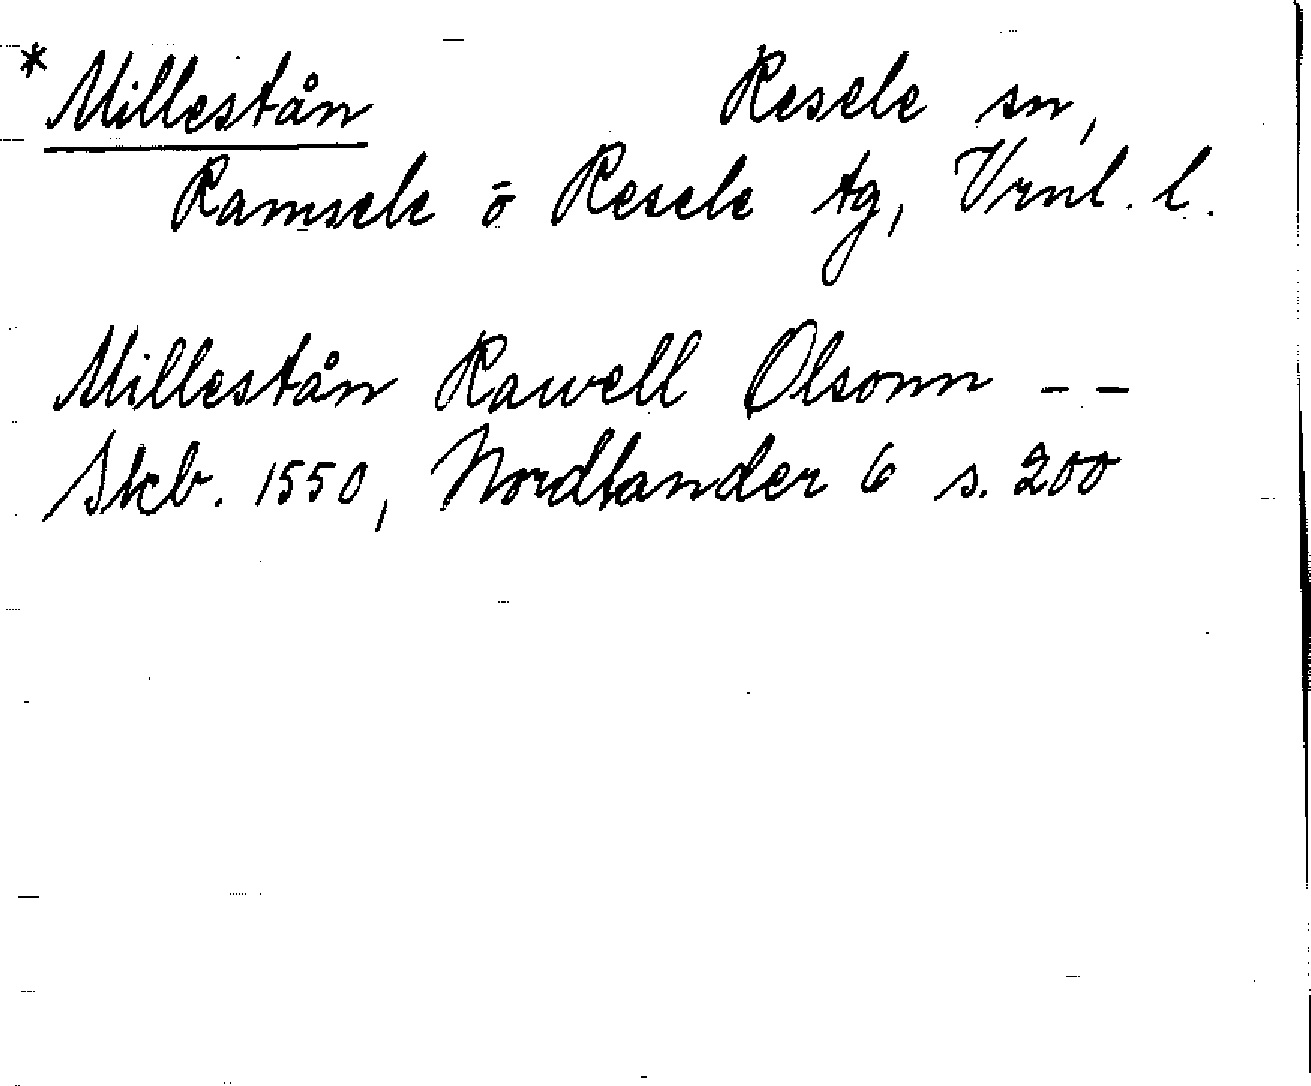 * Millestån Resele sn,
Ramsele o Resele tg, Vrnl. l.
Millestån Rawell Olsonn - -
Skb. 1550, Nordlander 6 s. 200